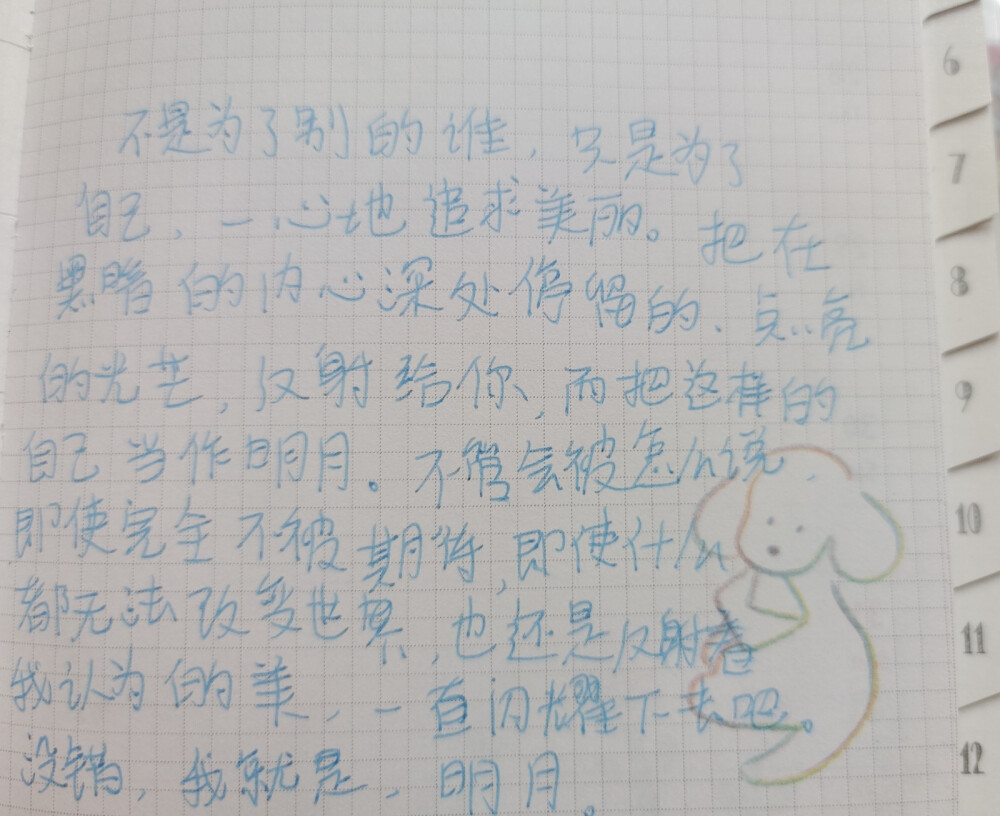 不是为了别的谁，只是为了
自己，一心地追求美丽。把在
黑暗的内心深处停留的、点亮
的光芒，反射给你，而把这样的
自己当作明月。不管会被怎么说
即使完全不被期待，即使什么
都无法改变世界，也还是反射着
我认为的美，一直闪耀下去吧。
没错，我就是，明月。
6
7
8
9
10
11
12